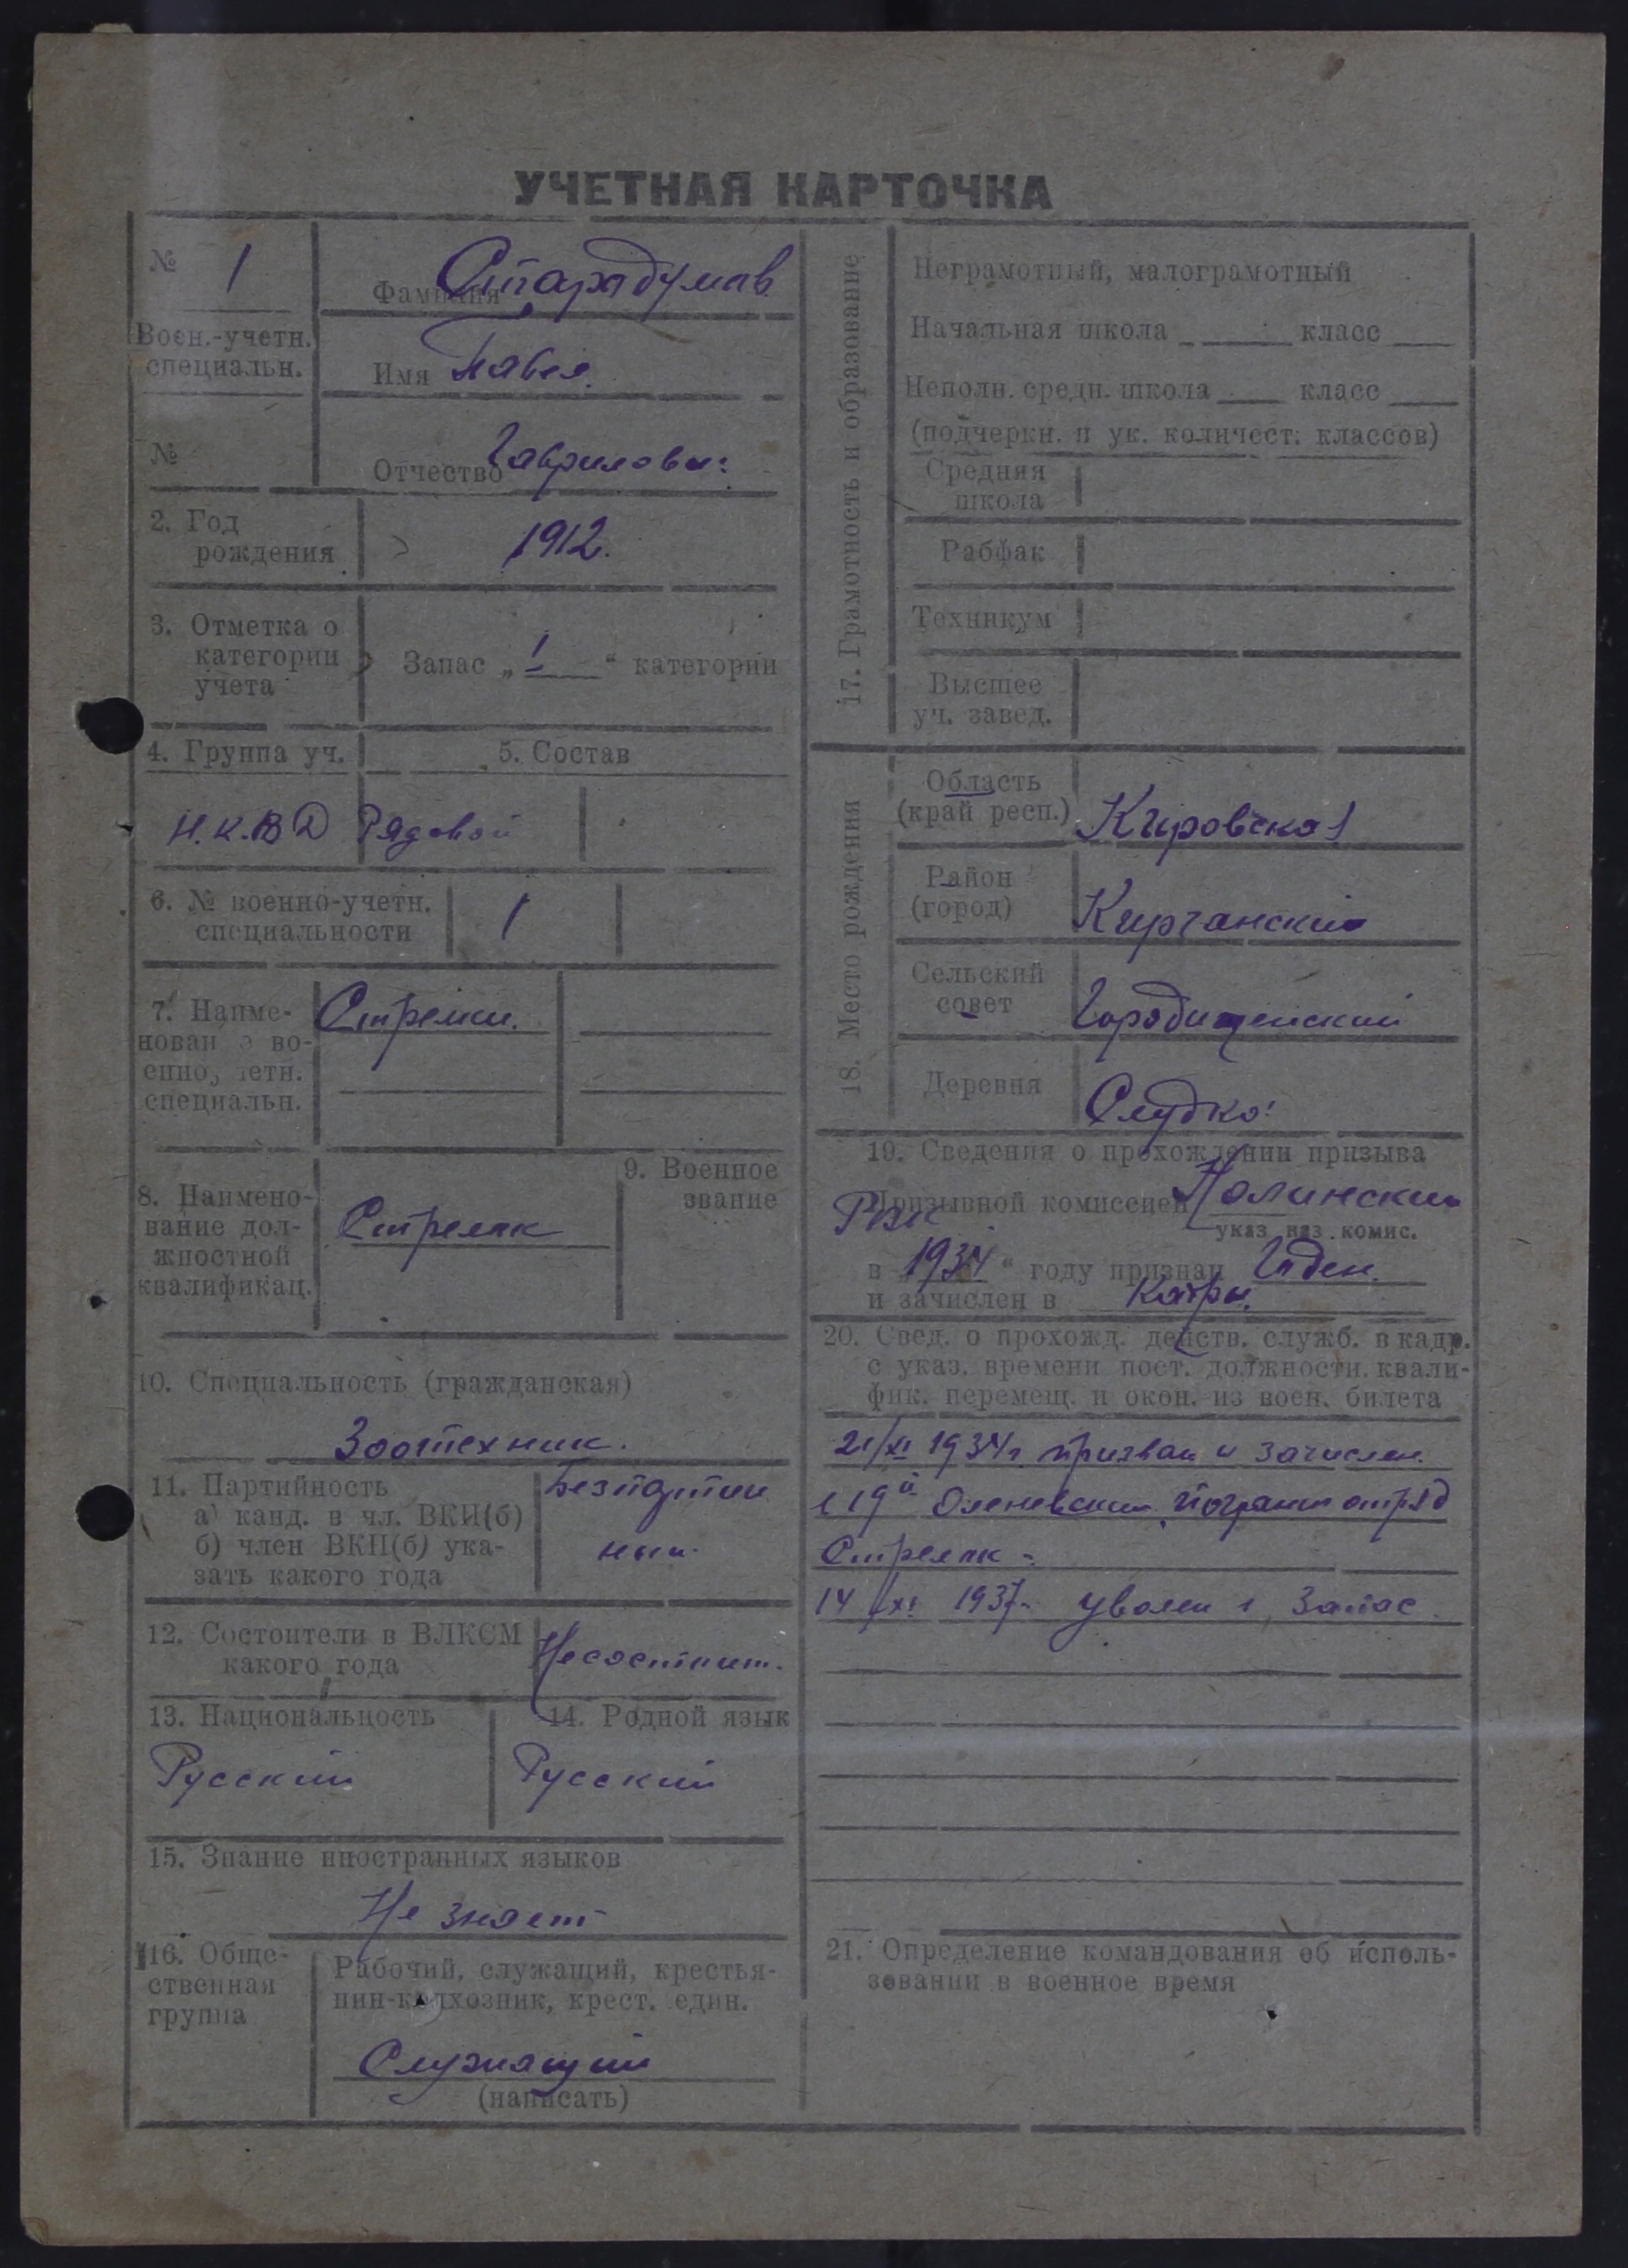 УЧЕТНАЯ КАРТОЧКА
№ 1
Фамилия Старадумов
Воен.-учетн.
специальн.
Имя Павел
№
Отчество Гаврилович
2. Год
рождения
1912.
3. Отметка о
категории
учета
Запас „ I “ категории
4. Группа уч.
5. Состав
Н.К.В Д
Рядовой
6. № военно-учетн.
специальности
1
7. Наиме-
нован е во-
енно четн.
специальн.
Стрелки.
8. Наимено-
вание дол-
жностной
квалификац.
Стрелок
9. Военное
звание
10. Специальность (гражданская)
Зоотехник.
11. Партийность
а) канд. в чл. ВКП(б)
б) член ВКП(б) ука-
зать какого года
Безпартий
ный.
12. Состоители в ВЛКСМ
какого года
Несостоит.
13. Национальность
Русский
14. Родной язык
Русский
15. Знание иностранных языков
Не знает
16. Обще-
ственная
группа
Рабочий, служащий, крестья-
нин-колхозник, крест. един.
Служащий
(написать)
17. Грамотность и образование
Неграмотный, малограмотный
Начальная школа класс
Неполн. средн. школа класс
(подчеркн. и ук. количест. классов)
Средняя
школа
Рабфак
Техникум
Высшее
уч. завед.
18. Место рождения
Область
(край респ.)
Кировская
Район
(город)
Кырчанский
Сельский
совет
Городищенский
Деревня
Слудка
19. Сведения о прохождении призыва
Призывной комиссией Нолинский
РВК
указ. наз. комис.
в „ 1934 “ году признан Годен.
и зачислен в Кадры.
20. Свед. о прохожд. действ. служб. в кадр.
с указ. времени пост. должности. квали-
фик. перемещ. и окон. из воен. билета
21/XI 1934г. призван и зачислен.
в 19й Олевский погранотряд
Стрелок -
14/XI 1937г. уволен в запас.
21. Определение командования об исполь-
зовании в военное время